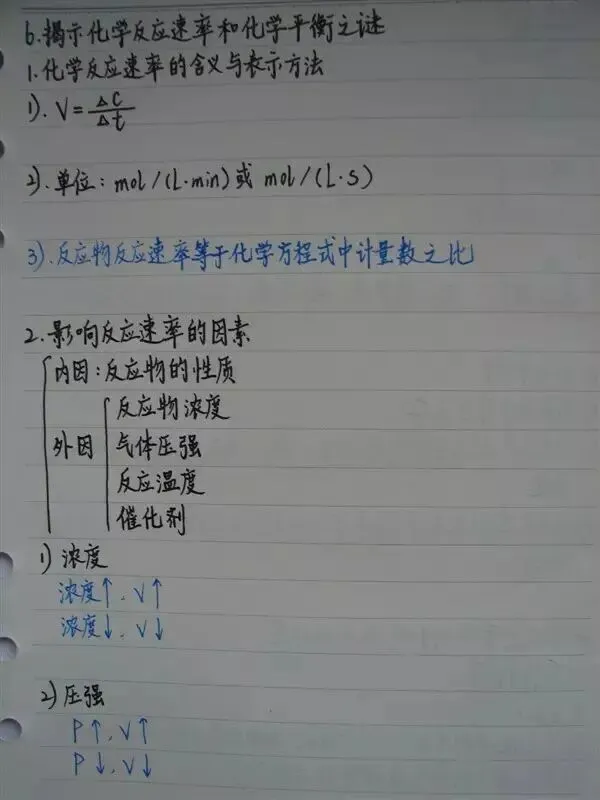 6.揭示化学反应速率和化学平衡之谜
1.化学反应速率的含义与表示方法
1). V=Δc/Δt
2).单位：mol/(L·min)或 mol/(L·s)
3).反应物反应速率等于化学方程式中计量数之比
2.影响反应速率的因素
内因:反应物的性质
外因
反应物浓度
气体压强
反应温度
催化剂
1)浓度
浓度↑，V↑
浓度↓，V↓
2)压强
P↑,V↑
P↓,V↓